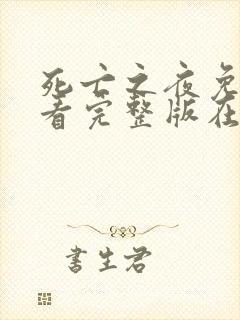 死亡之夜免
看完整版在
書生君